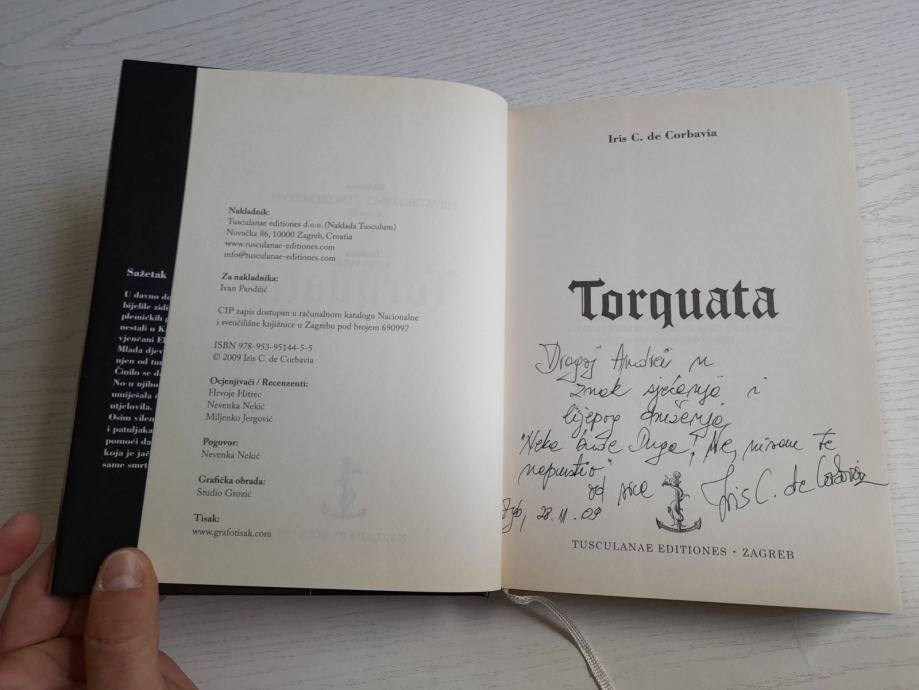 Sažetak
U davno do
bijelile zidi
plemićkih
nestali u K
vjenčani
Mlada djev
njen od
Činilo se d
No u njiho
umiješala
utjelovila.
Osim vilen
i patuljaka
pomoći da
koja je jač
same smrt
Nakladnik:
Tusculanae editiones d.o.o. (Naklada Tusculum)
Novačka 86, 10000 Zagreb, Croatia
www.tusculanae-editiones.com
info@tusculanae-editiones.com
Za nakladnika:
Ivan Pandžić
CIP zapis dostupan u računalnom katalogu Nacionalne
i sveučilišne knjižnice u Zagrebu pod brojem 690997
ISBN 978-953-95144-5-5
© 2009 Iris C. de Corbavia
Ocjenjivači / Recenzenti:
Hrvoje Hitrec
Nevenka Nekić
Miljenko Jergović
Pogovor:
Nevenka Nekić
Grafička obrada:
Studio Grozić
Tisak:
www.grafotisak.com
Iris C. de Corbavia
Torquata
Dragoj Andrei u
znak sjećanja i
lijepog druženja
"Neka bude Duga! Ne, nisam te
napustio"
od srca Iris C. de Corbavia
Zgb, 28.11.09
TUSCULANAE EDITIONES · ZAGREB